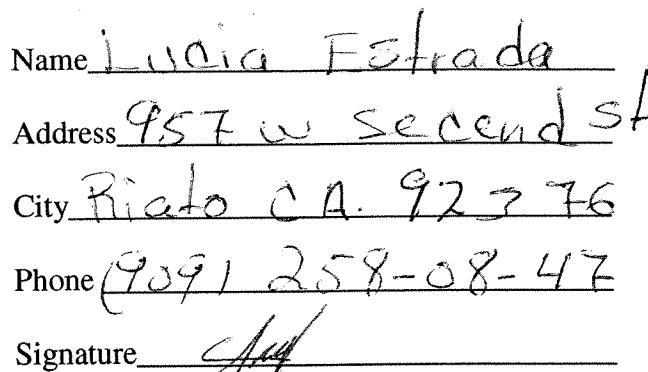 Name Lucia Estrada
Address 957 w second st
City Rialto CA. 92376
Phone (909) 258-08-47
Signature